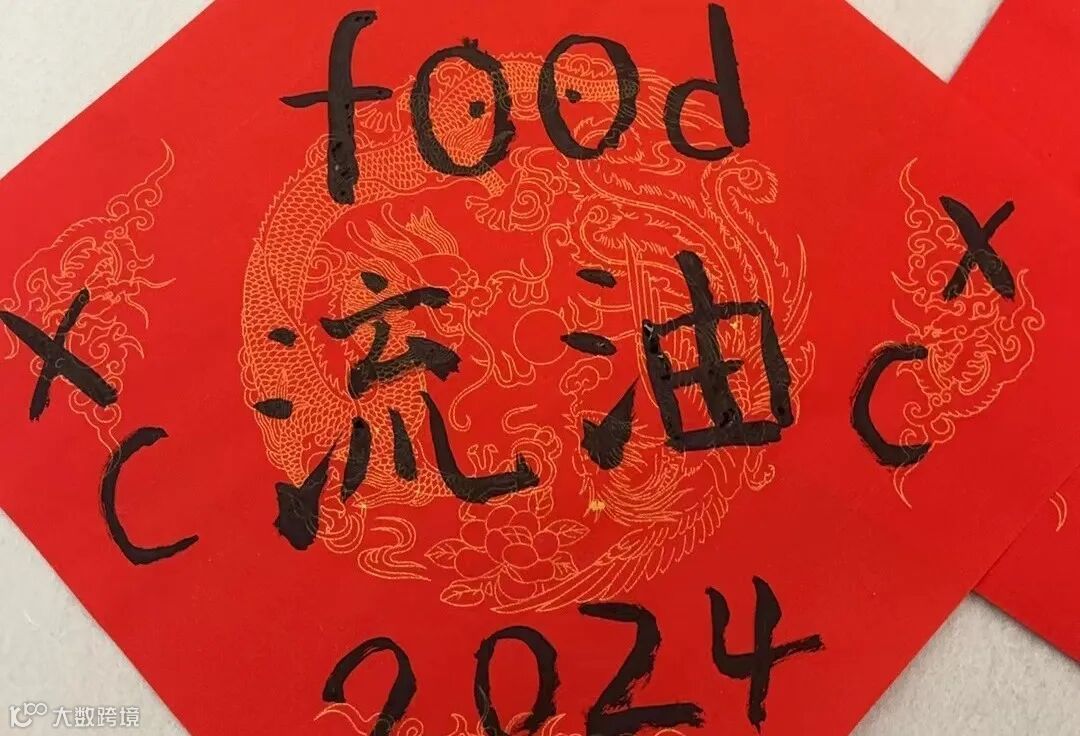 food
X X
流油
C C
2024
大数跨境